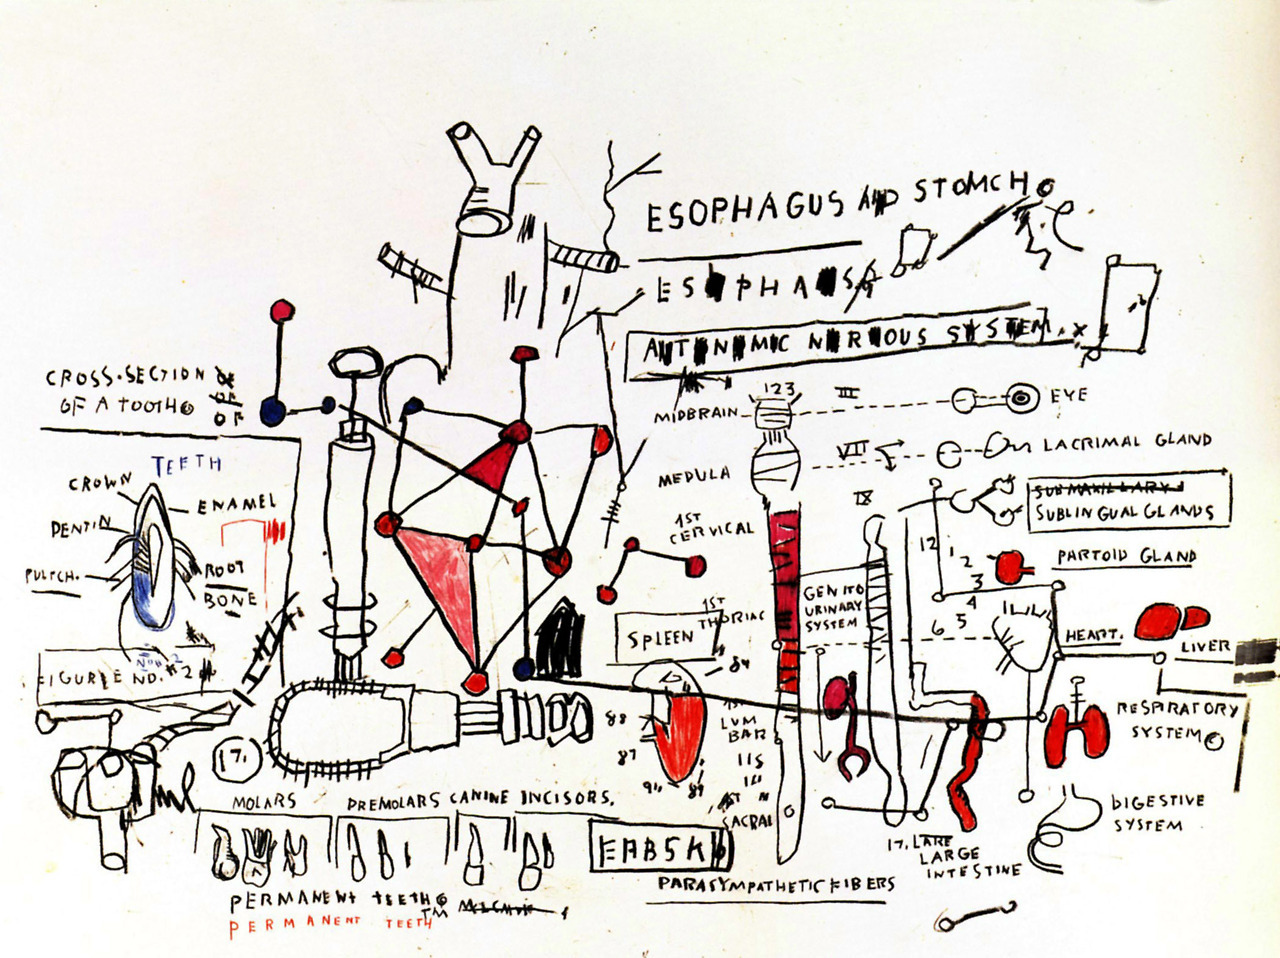 ESOPHAGUS AND STOMCH
ESOPHA S
AUTONOMIC NERVOUS SYSTEM
CROSS-SECTION OF
OF A TOOTH OF
OF
TEETH
CROWN
ENAMEL
DENTIN
PULTCH.
ROOT
BONE
NO. 2
FIGURE NO. #2
123
III
MIDBRAIN
EYE
VII
MEDULA
LACRIMAL GLAND
IX
SUBMAXILLARY
SUBLINGUAL GLANDS
1ST
CERVICAL
12
1
2
3
4
5
6
PARTOID GLAND
GENITO
URINARY
SYSTEM
1ST
THORIAC
SPLEEN
HEART.
LIVER
89
88
87
90
89
1ST
LUMBAR
115
1ST
SACRAL
RESPIRATORY
SYSTEM
DIGESTIVE
SYSTEM
17.
MOLARS
PREMOLARS CANINE INCISORS.
EABSK
17. LARE
LARGE
INTESTINE
PARASYMPATHETIC FIBERS
PERMANENT TEETH
TM
PERMANENT TEETH